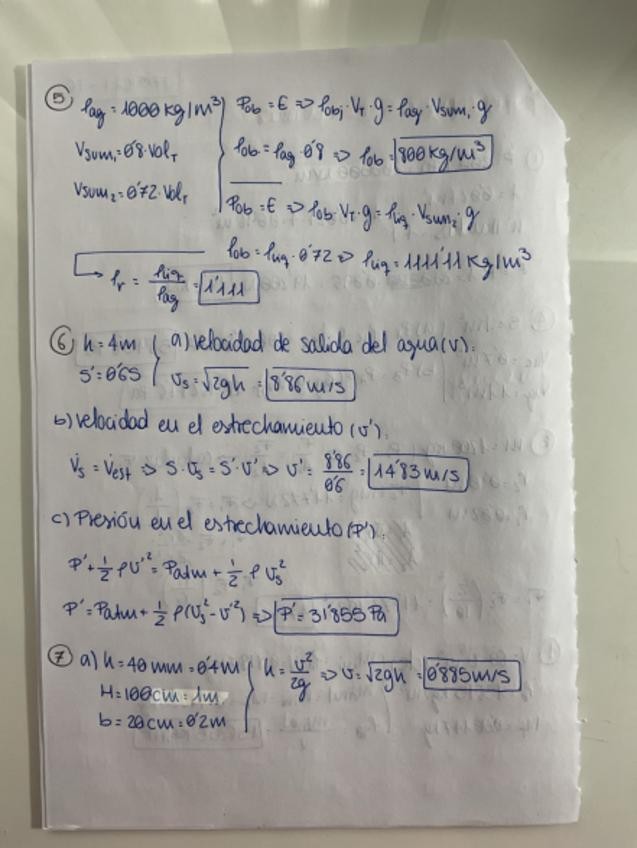 ⑤ ρag = 1000 kg/m³
Vsum₁ = 0'8·VolT
Vsum₂ = 0'72·VolT
Pob = E => ρobj·VT·g = ρag·Vsum₁·g
ρob = ρag·0'8 => ρob = 800 kg/m³
Pob = E => ρob·VT·g = ρliq·Vsum₂·g
ρob = ρliq·0'72 => ρliq = 1111'11 kg/m³
ρr = ρliq/ρag = 1'111
⑥ h = 4m
S' = 0'6S
a) velocidad de salida del agua (v):
vs = √2gh = 8'86 m/s
b) velocidad en el estrechamiento (v'):
V̇s = V̇est => S·vs = S'·v' => v' = 8'86/0'6 = 14'83 m/s
c) Presión en el estrechamiento (P'):
P' + 1/2 ρv'² = Patm + 1/2 ρ vs²
P' = Patm + 1/2 ρ(vs² - v'²) => P' = 31'855 Pa
⑦ a) h = 40 mm = 0'4m
H = 100cm = 1m
b = 20cm = 0'2m
h = v²/2g => v = √2gh = 0'885 m/s